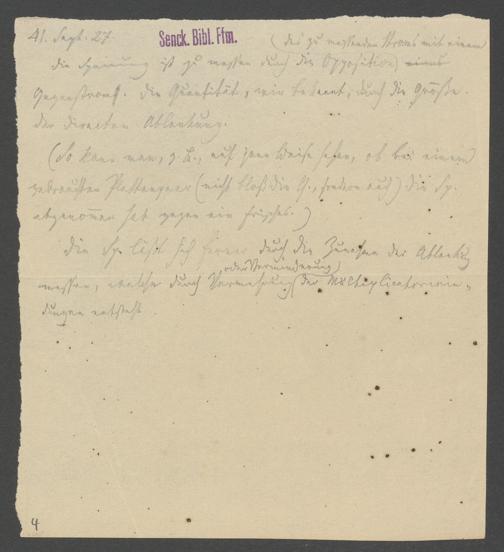 41. Sept. 27.
Senck. Bibl. Ffm.
(des zu messenden Stroms mit einem
die Spannung ist zu messen durch die Opposition) eines
Gegenstroms. die Quantität, wie bekannt, durch die Größe
der direkten Ablenkung.
(So kann man, z. B., auf jene Weise sehen, ob bei einem
gebrauchten Plattenpaar (nicht bloß die Q., sondern auch) die Sp.
abgenommen hat gegen ein frisches.)
die Sp. läßt sich ferner durch die Zunahme der Ablenkung
oder Verminderung)
messen, welche durch Vermehrung (der Multiplicatorwin-
dungen entsteht.
4